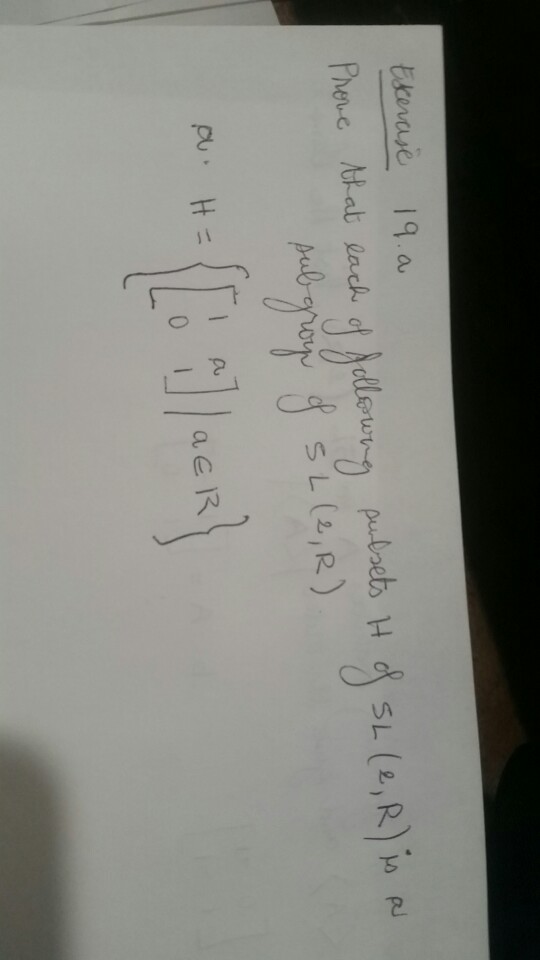 Exercise 19.a
Prove that each of following subsets H of SL(2,R) is a
subgroup of SL(2,R).
a. H = { [ 1 a
0 1 ] | a ∈ R }